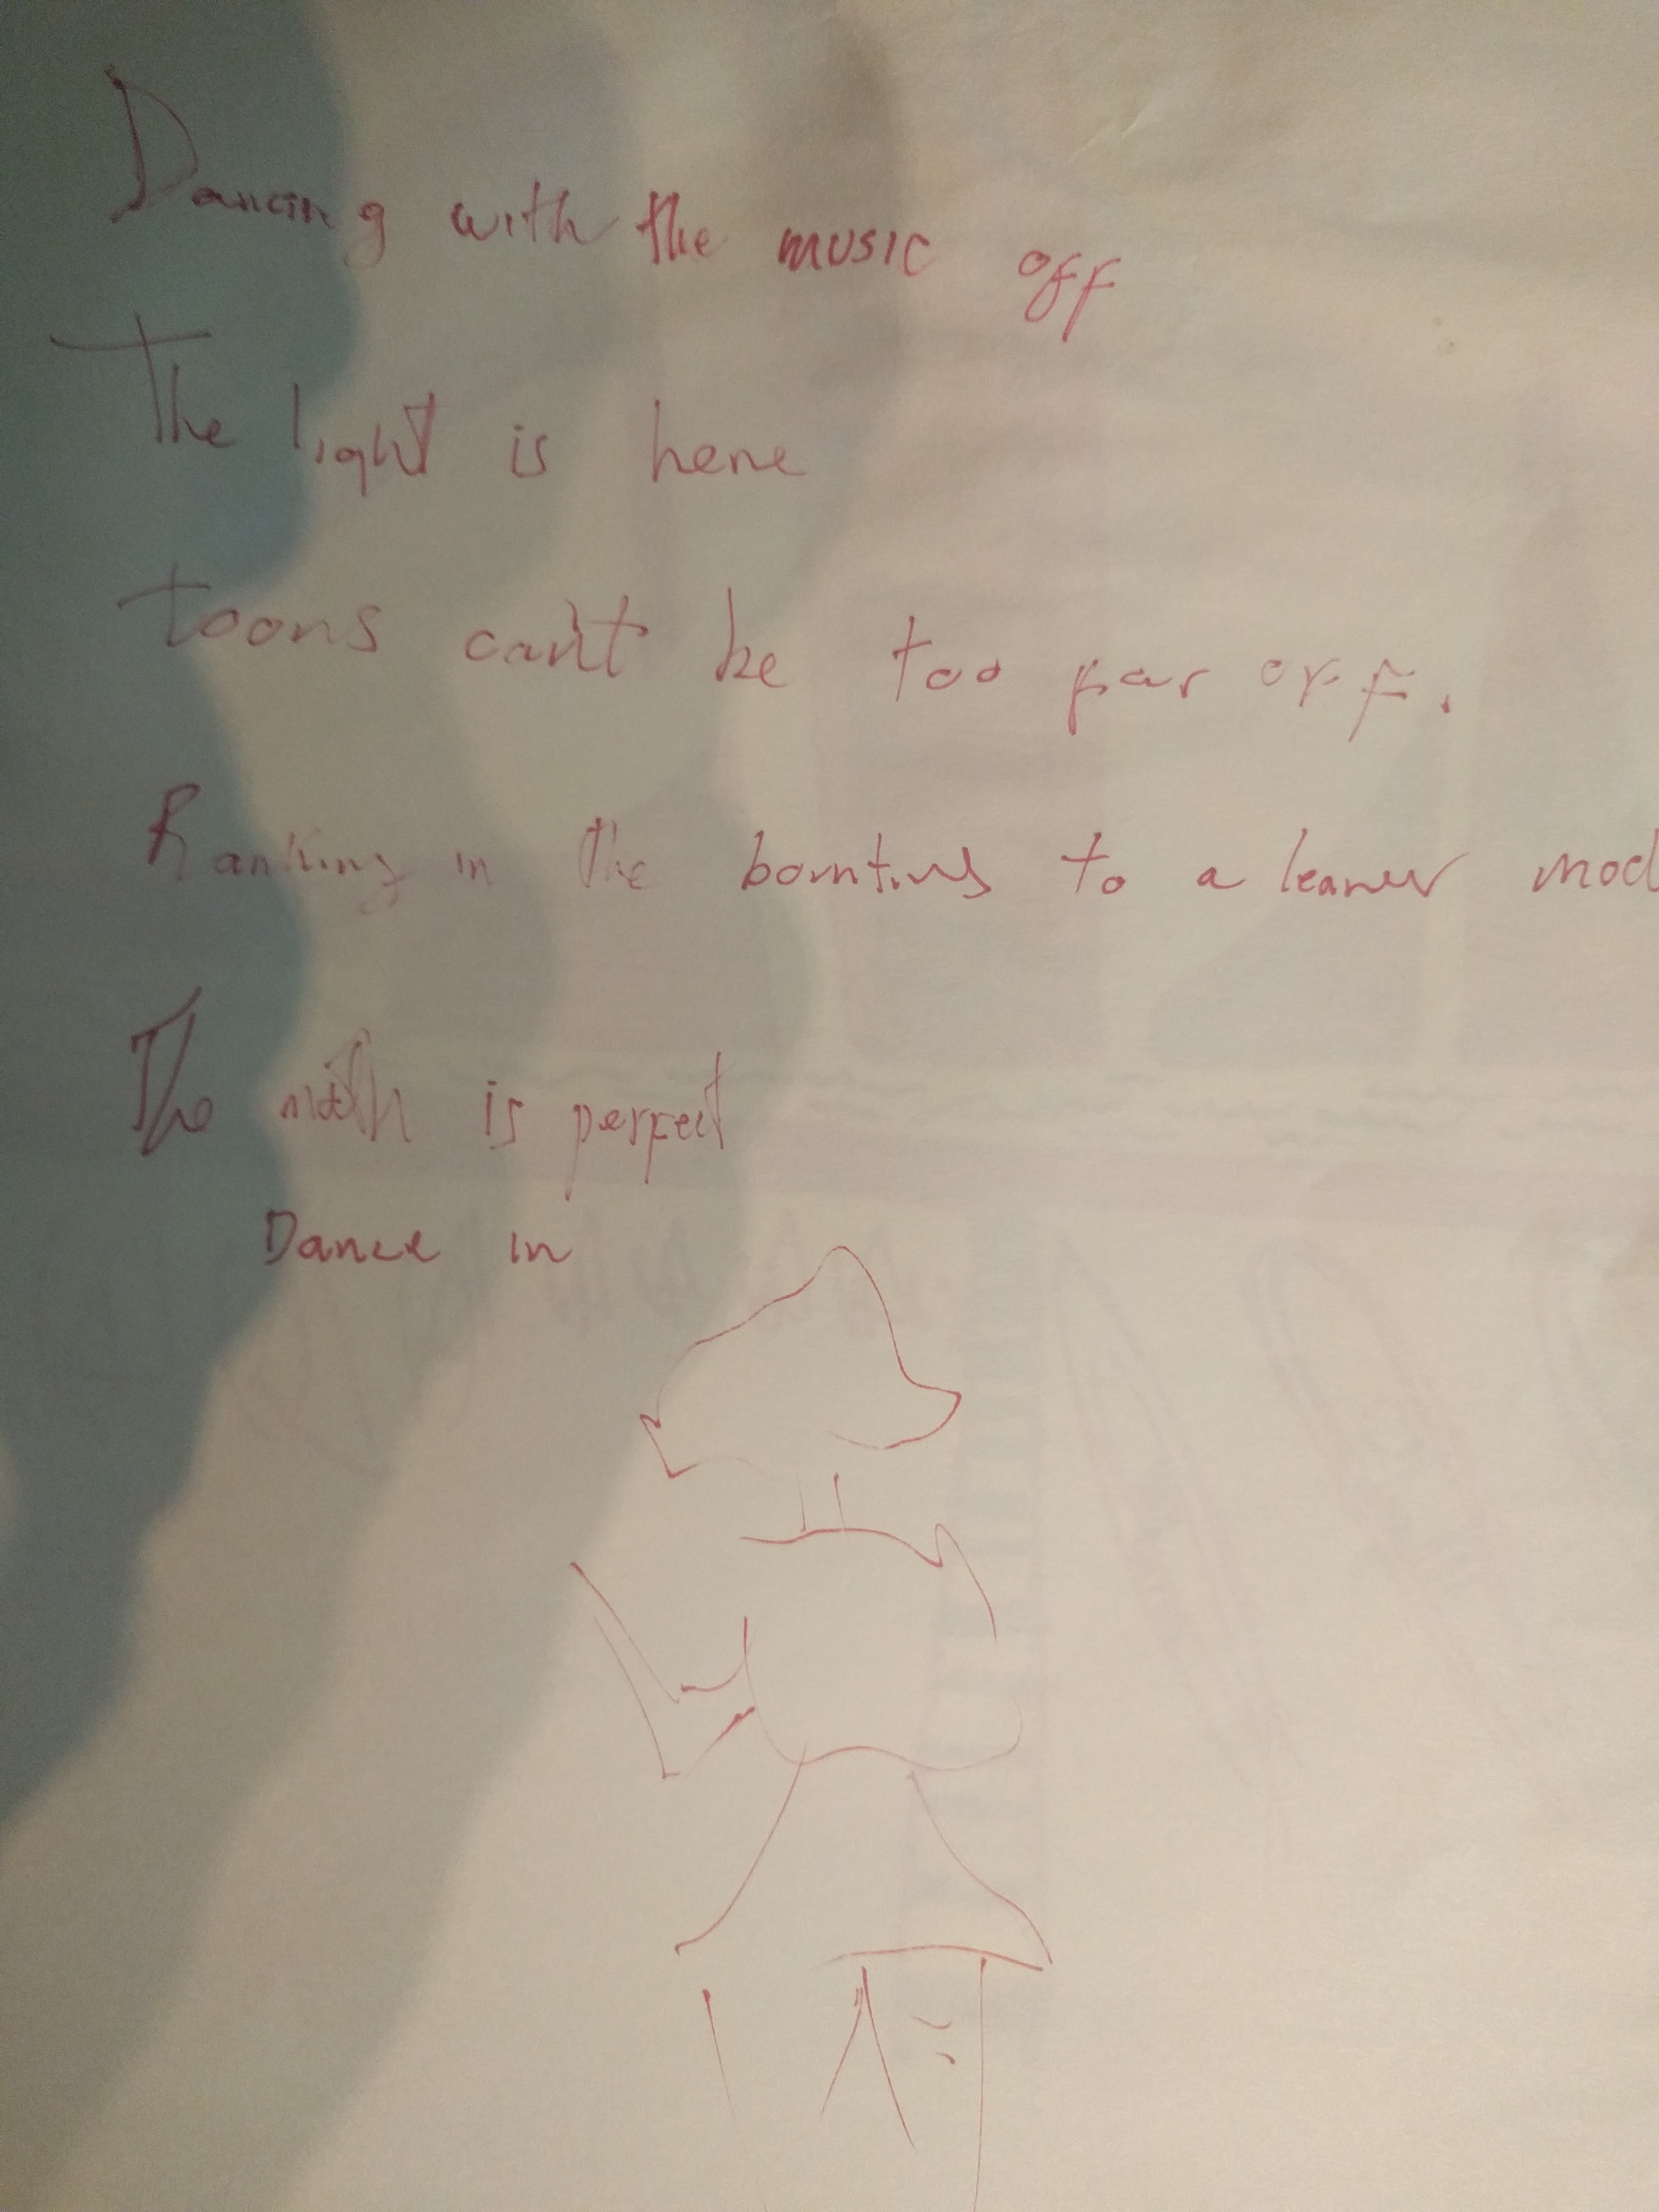 Dancing with the music off
The light is here
toons can't be too far off.
Ranking in the bounties to a leaner mod
The math is perfect
Dance in